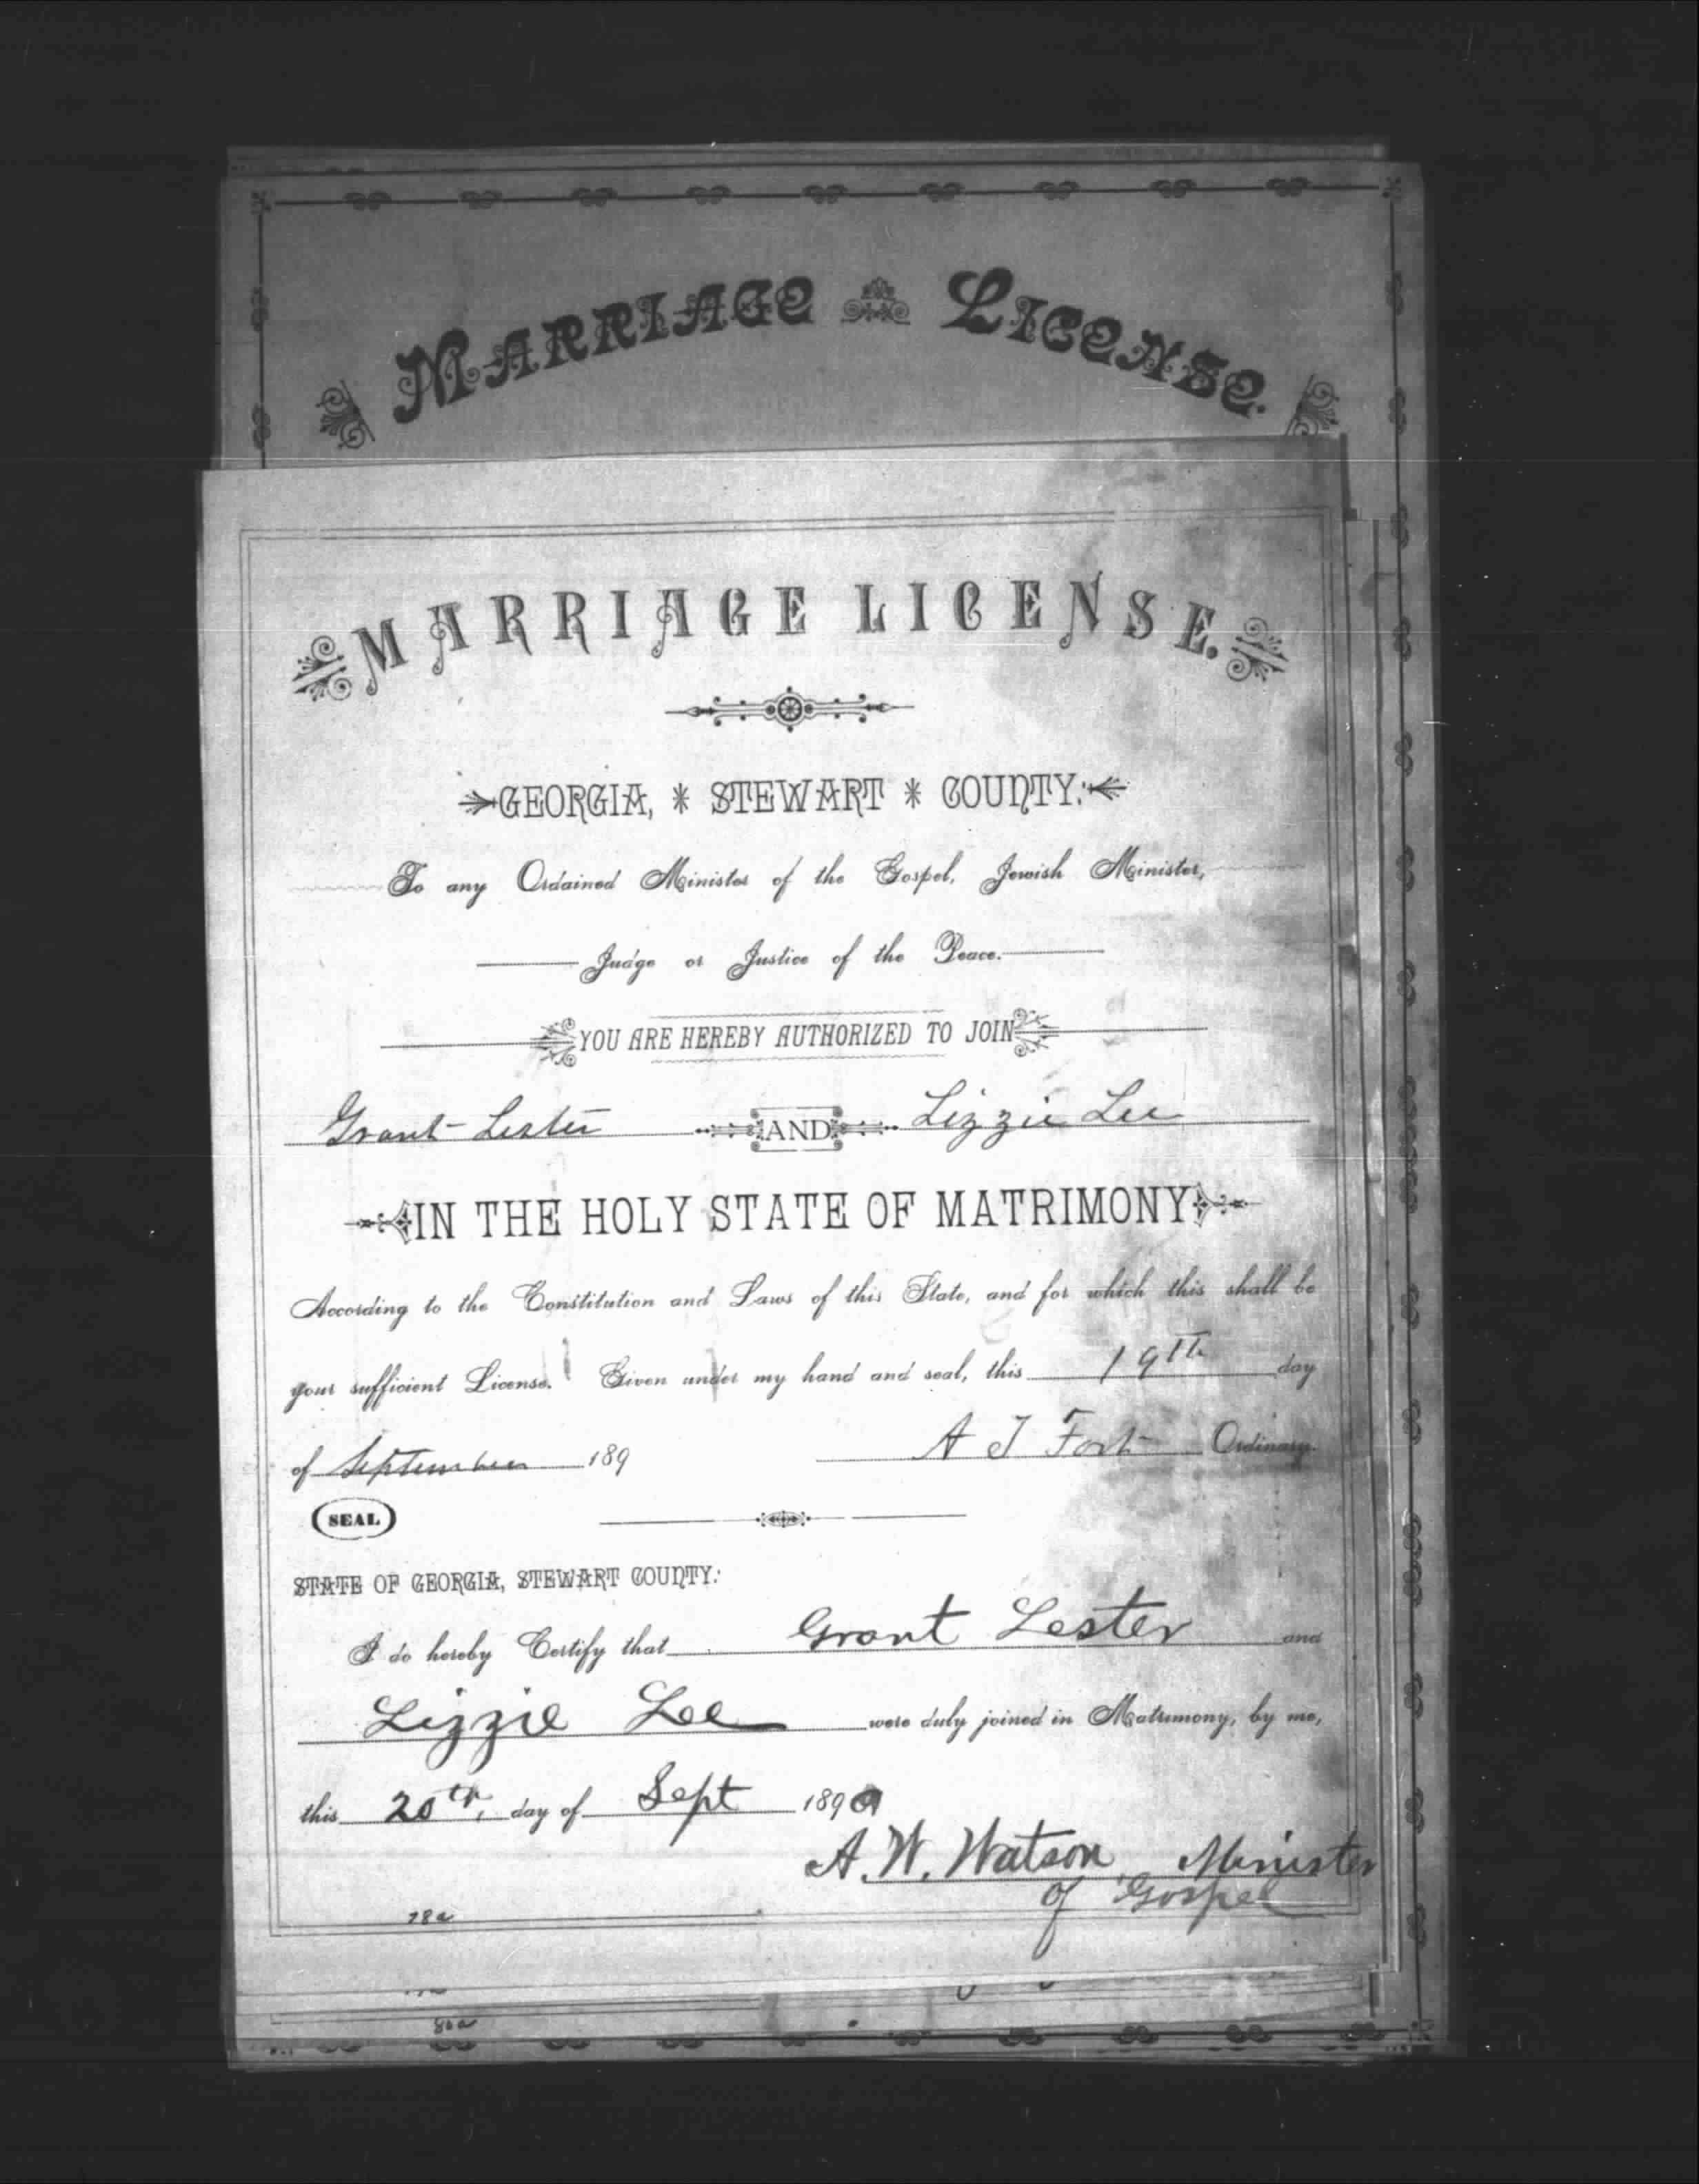 MARRIAGE LICENSE.
MARRIAGE LICENSE.
GEORGIA, * STEWART * COUNTY:
To any Ordained Minister of the Gospel, Jewish Minister,
Judge or Justice of the Peace.
YOU ARE HEREBY AUTHORIZED TO JOIN
Grant Lester AND Lizzie Lee
IN THE HOLY STATE OF MATRIMONY
According to the Constitution and Laws of this State, and for which this shall be
your sufficient License. Given under my hand and seal, this 19th day
of September 189 A T Fort Ordinary.
SEAL
STATE OF GEORGIA, STEWART COUNTY:
I do hereby Certify that Grant Lester and
Lizzie Lee were duly joined in Matrimony, by me,
this 20th, day of Sept 189
A. W. Watson Minister
of Gospel
78a